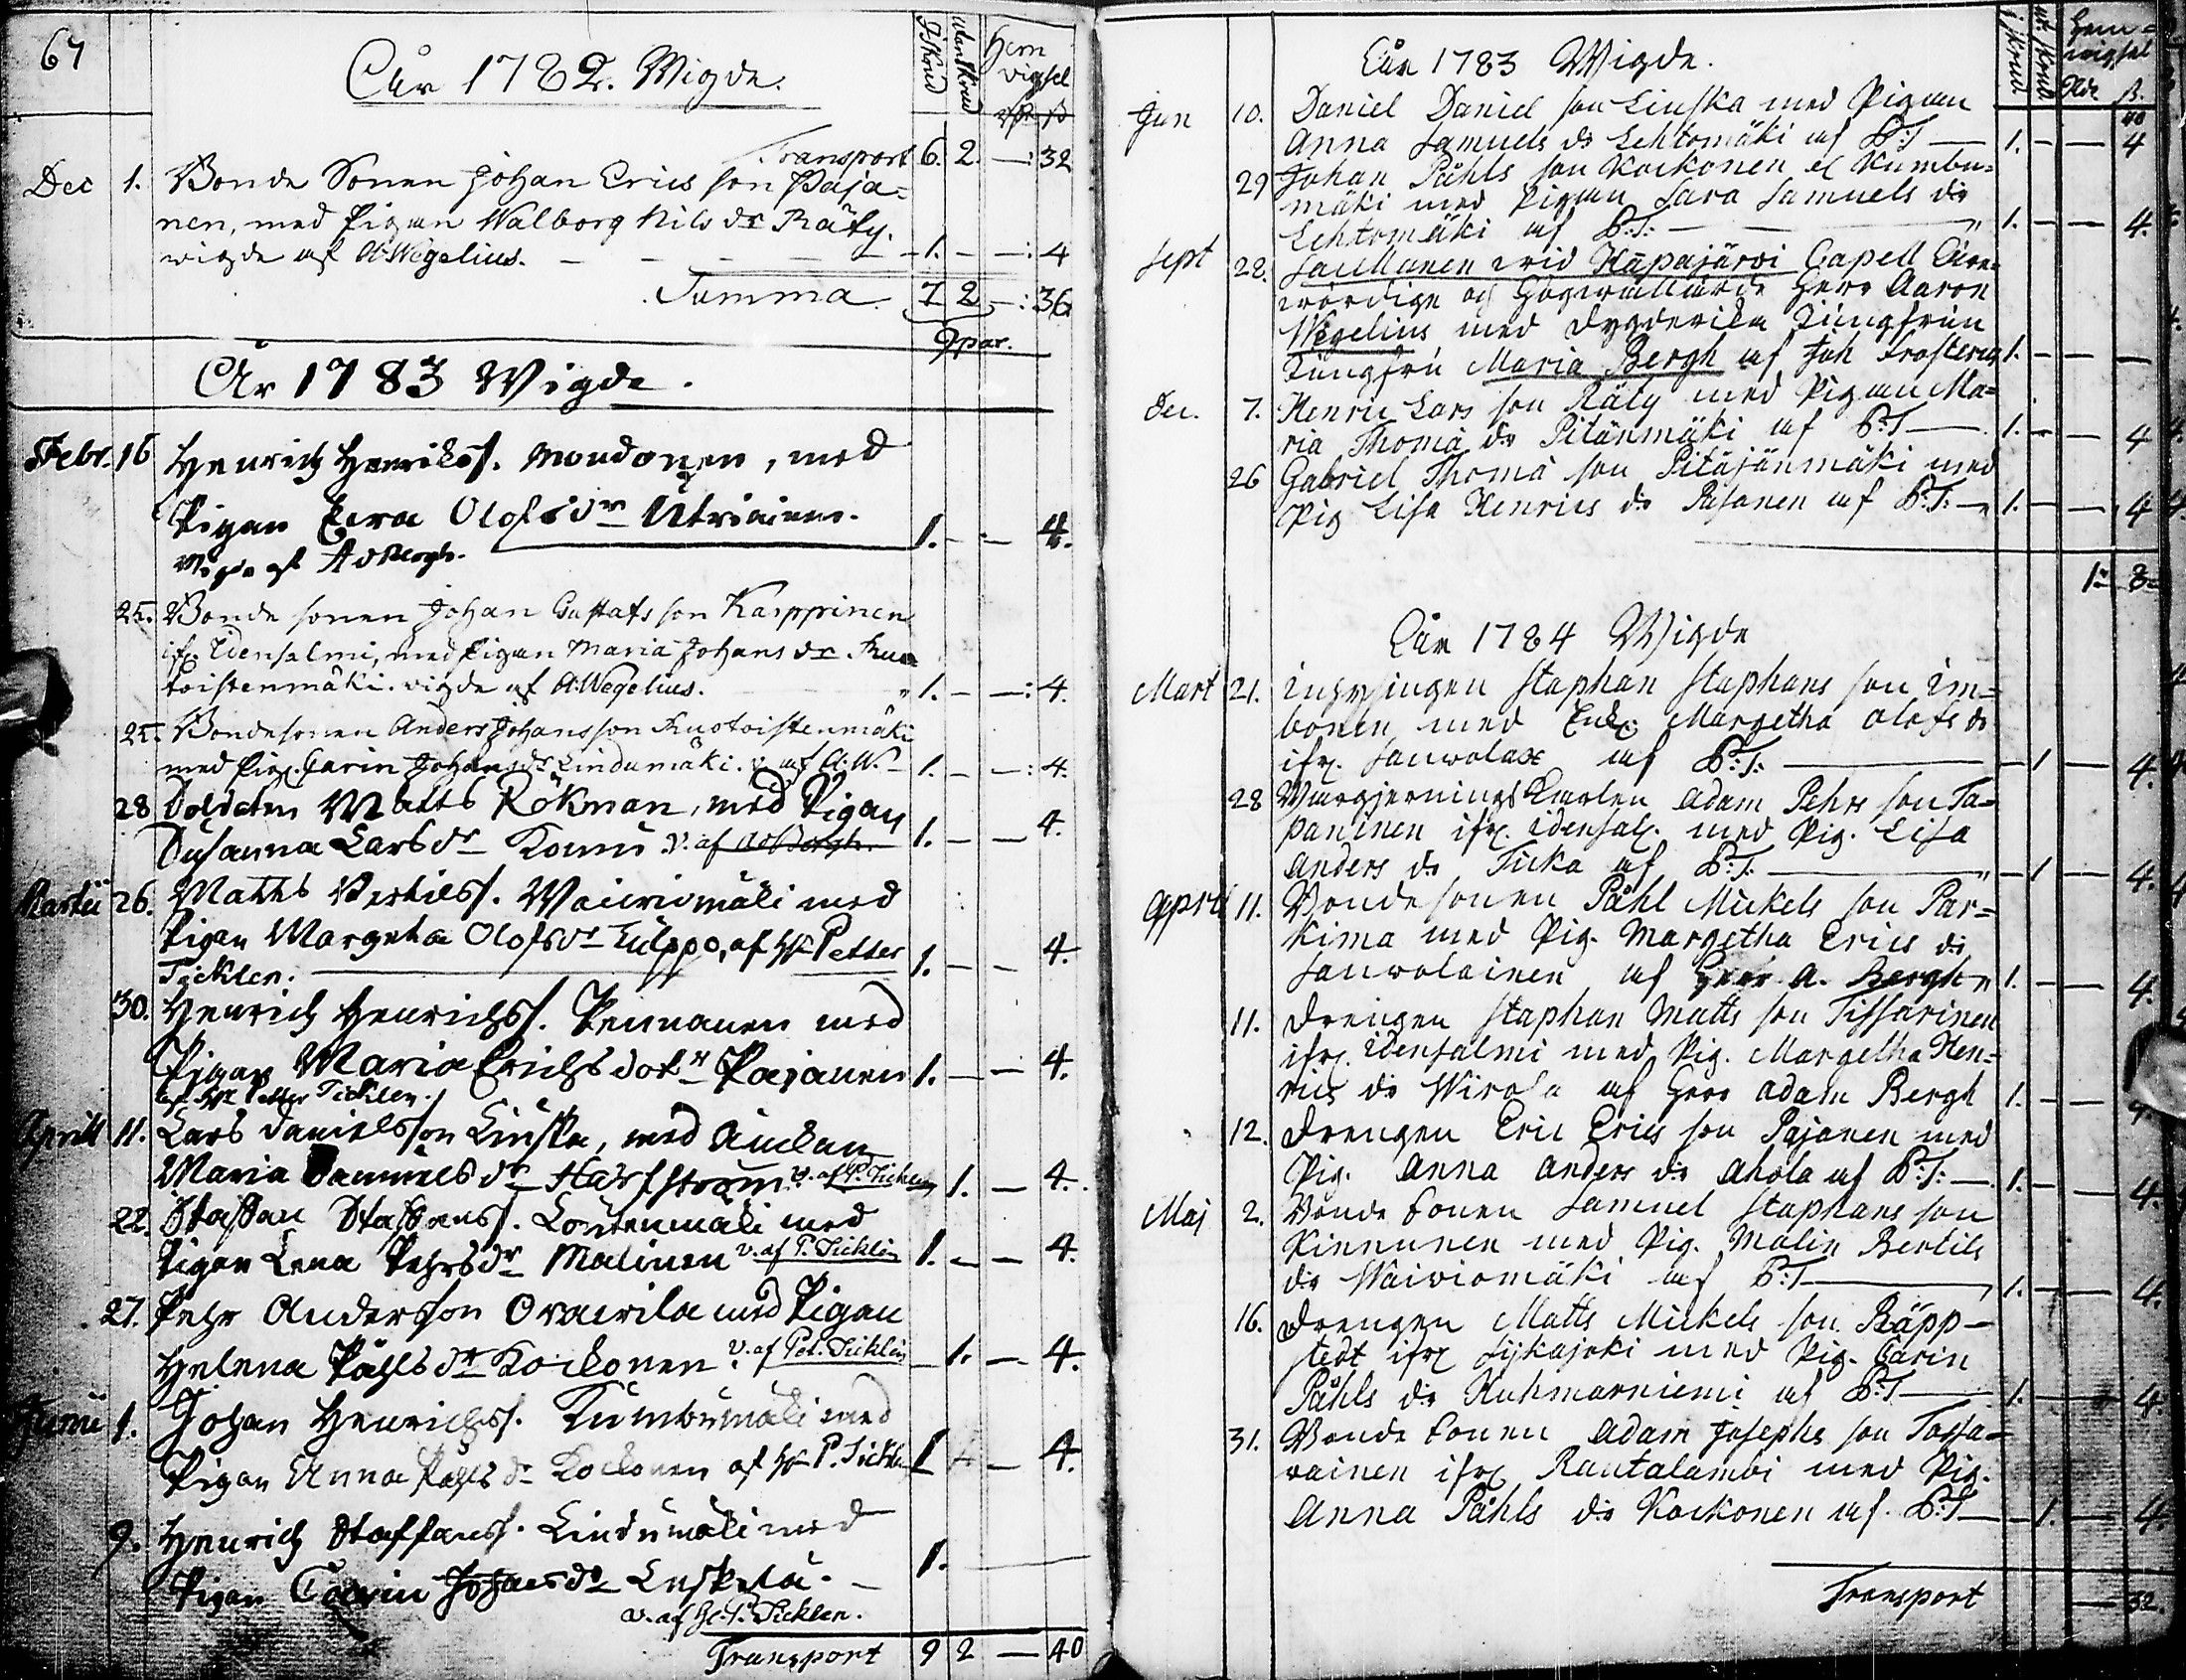 67
År 1782. Wigde.
I Skrud
utan Skrud
Hem vigsel
Rdr ß
Transport 6. 2. —: 32
Dec 1. Bonde Sonen Johan Erics son Paja=
nen, med Pigan Walborg Nils dr Räty.
wigde af A:Wegelius. — — — — 1. — —: 4
Summa 7 2 —: 36
9 par.
År 1783 Wigde.
Febr. 16 Henrich Henrikss. Mondonen, med
Pigan Ewa Olofs dr Utriainen. 1. — — 4.
Wigde af Ad Bergh.
25. Bonde sonen Johan Gustafs son Karppinen
ifr. Idensalmi, med Pigan Maria Johans dr Kuo
toistenmäki. vigde af A:Wegelius. 1. — —: 4.
25. Bondesonen Anders Johansson Kuotoistenmäki
med Pig. Carin Johans dr Lindumäki. v. af A:W. 1. — —: 4.
28 Soldaten Matts Rökman, med Pigan
Susanna Lars dr Komu. v. af Ad Bergh. 1. — — 4.
Martii 26. Matts Bertilss. Waiviomäki med
Pigan Margetha Olofs dr Tulppo, af Hr Petter 1. — — 4.
Ticklen.
30. Henrich Henrichss. Pennanen med
Pigan Maria Erichs dotr Pajanen 1. — — 4.
af Hr Petter Ticklen.
Aprill 11. Lars Danielsson Liuska, med Änckan
Maria Samuels dr Harfström. v. af P. Ticklen 1. — 4.
22. Staffan Staffanss. Koutenmäki med
Pigan Lena Pehrs dr Malinen v. af P. Ticklen 1. — — 4.
27. Pehr Andersson Oravila med Pigan
Helena Påhls dr Kockonen v. af Pet. Ticklen — 1. — 4.
Junii 1. Johan Henrichss. Kumbumäki med
Pigan Anna Påhls dr Kockonen af Hr P. Tickl 1 — 4.
9. Henrich Staffanss. Lindumäki med
Pigan Carin Johans dr Leskelä. — 1.
v. af Hr P. Ticklen.
Transport 9 2 — 40
År 1783 Wigde.
i skrud
ut skrud
Hem=
wigsel
Rdr ß.
40
Jun 10. Daniel Daniel son Liuska med Pigan
Anna Samuels dr Lehtomäki af P:T — 1. — — 4
29 Johan Påhls son Kockonen el Kumbu=
mäki med Pigan Sara Samuels dr
Lehtomäki af P:T: — 1. — — 4.
Sept 28. Sacellanen wid Haapajärvi Capell Ähre=
wördige och Högwällärde Herr Aaron
Wegelius med Dygderika Jungfrun
Jungfru Maria Bergh af Joh Frosterus 1. — — —
Dec. 7. Henric Lars son Räty med Pigan Ma=
ria Thoma dr Pitänmäki af P:T — 1. — — 4
26 Gabriel Thoma son Pitäjänmäki med
Pig Lisa Henrics dr Pasanen af P:T: — 1. — — 4
1 — 8
År 1784 Wigde
Mart 21. Inhysingen Staphan Staphans son Im=
bonen med Enk. Margetha Olofs dr
ifr. Sauwolax af P:T: — 1 — 4.
28 Wargierings Karlen Adam Pehrs son Ta=
paninen ifr. Idensal. med Pig. Lisa
Anders dr Ticka af P:T. — 1 — 4.
Aprill 11. Bonde sonen Påhl Mickels son Par=
kima med Pig. Margetha Erics dr
Sauwolainen af Herr A. Bergh 1. — — 4.
11. Drengen Staphan Matts son Tissarinen
ifr. Idensalmi med Pig. Margetha Hen=
rics dr Wirola af Herr Adam Bergh 1. — — 4.
12. Drengen Eric Erics son Pajanen med
Pig. Anna Anders dr Ahola af P:T: — 1. — — 4.
Maj 2. Bonde Sonen Samuel Staphans son
Kinnunen med Pig. Malin Bertils
dr Waiviomäki af P:T — 1. — — 4.
16. Drengen Matts Mickels son Räpp—
stedt ifr Sijkajoki med Pig. Carin
Påhls dr Kuhmarniemi af P:T — 1. — — 4.
31. Bonde Sonen Adam Josephs son Tossa=
vainen ifr Rautalambi med Pig.
Anna Påhls dr Kockonen af P:T — 1. — 4.
Transport — 32.